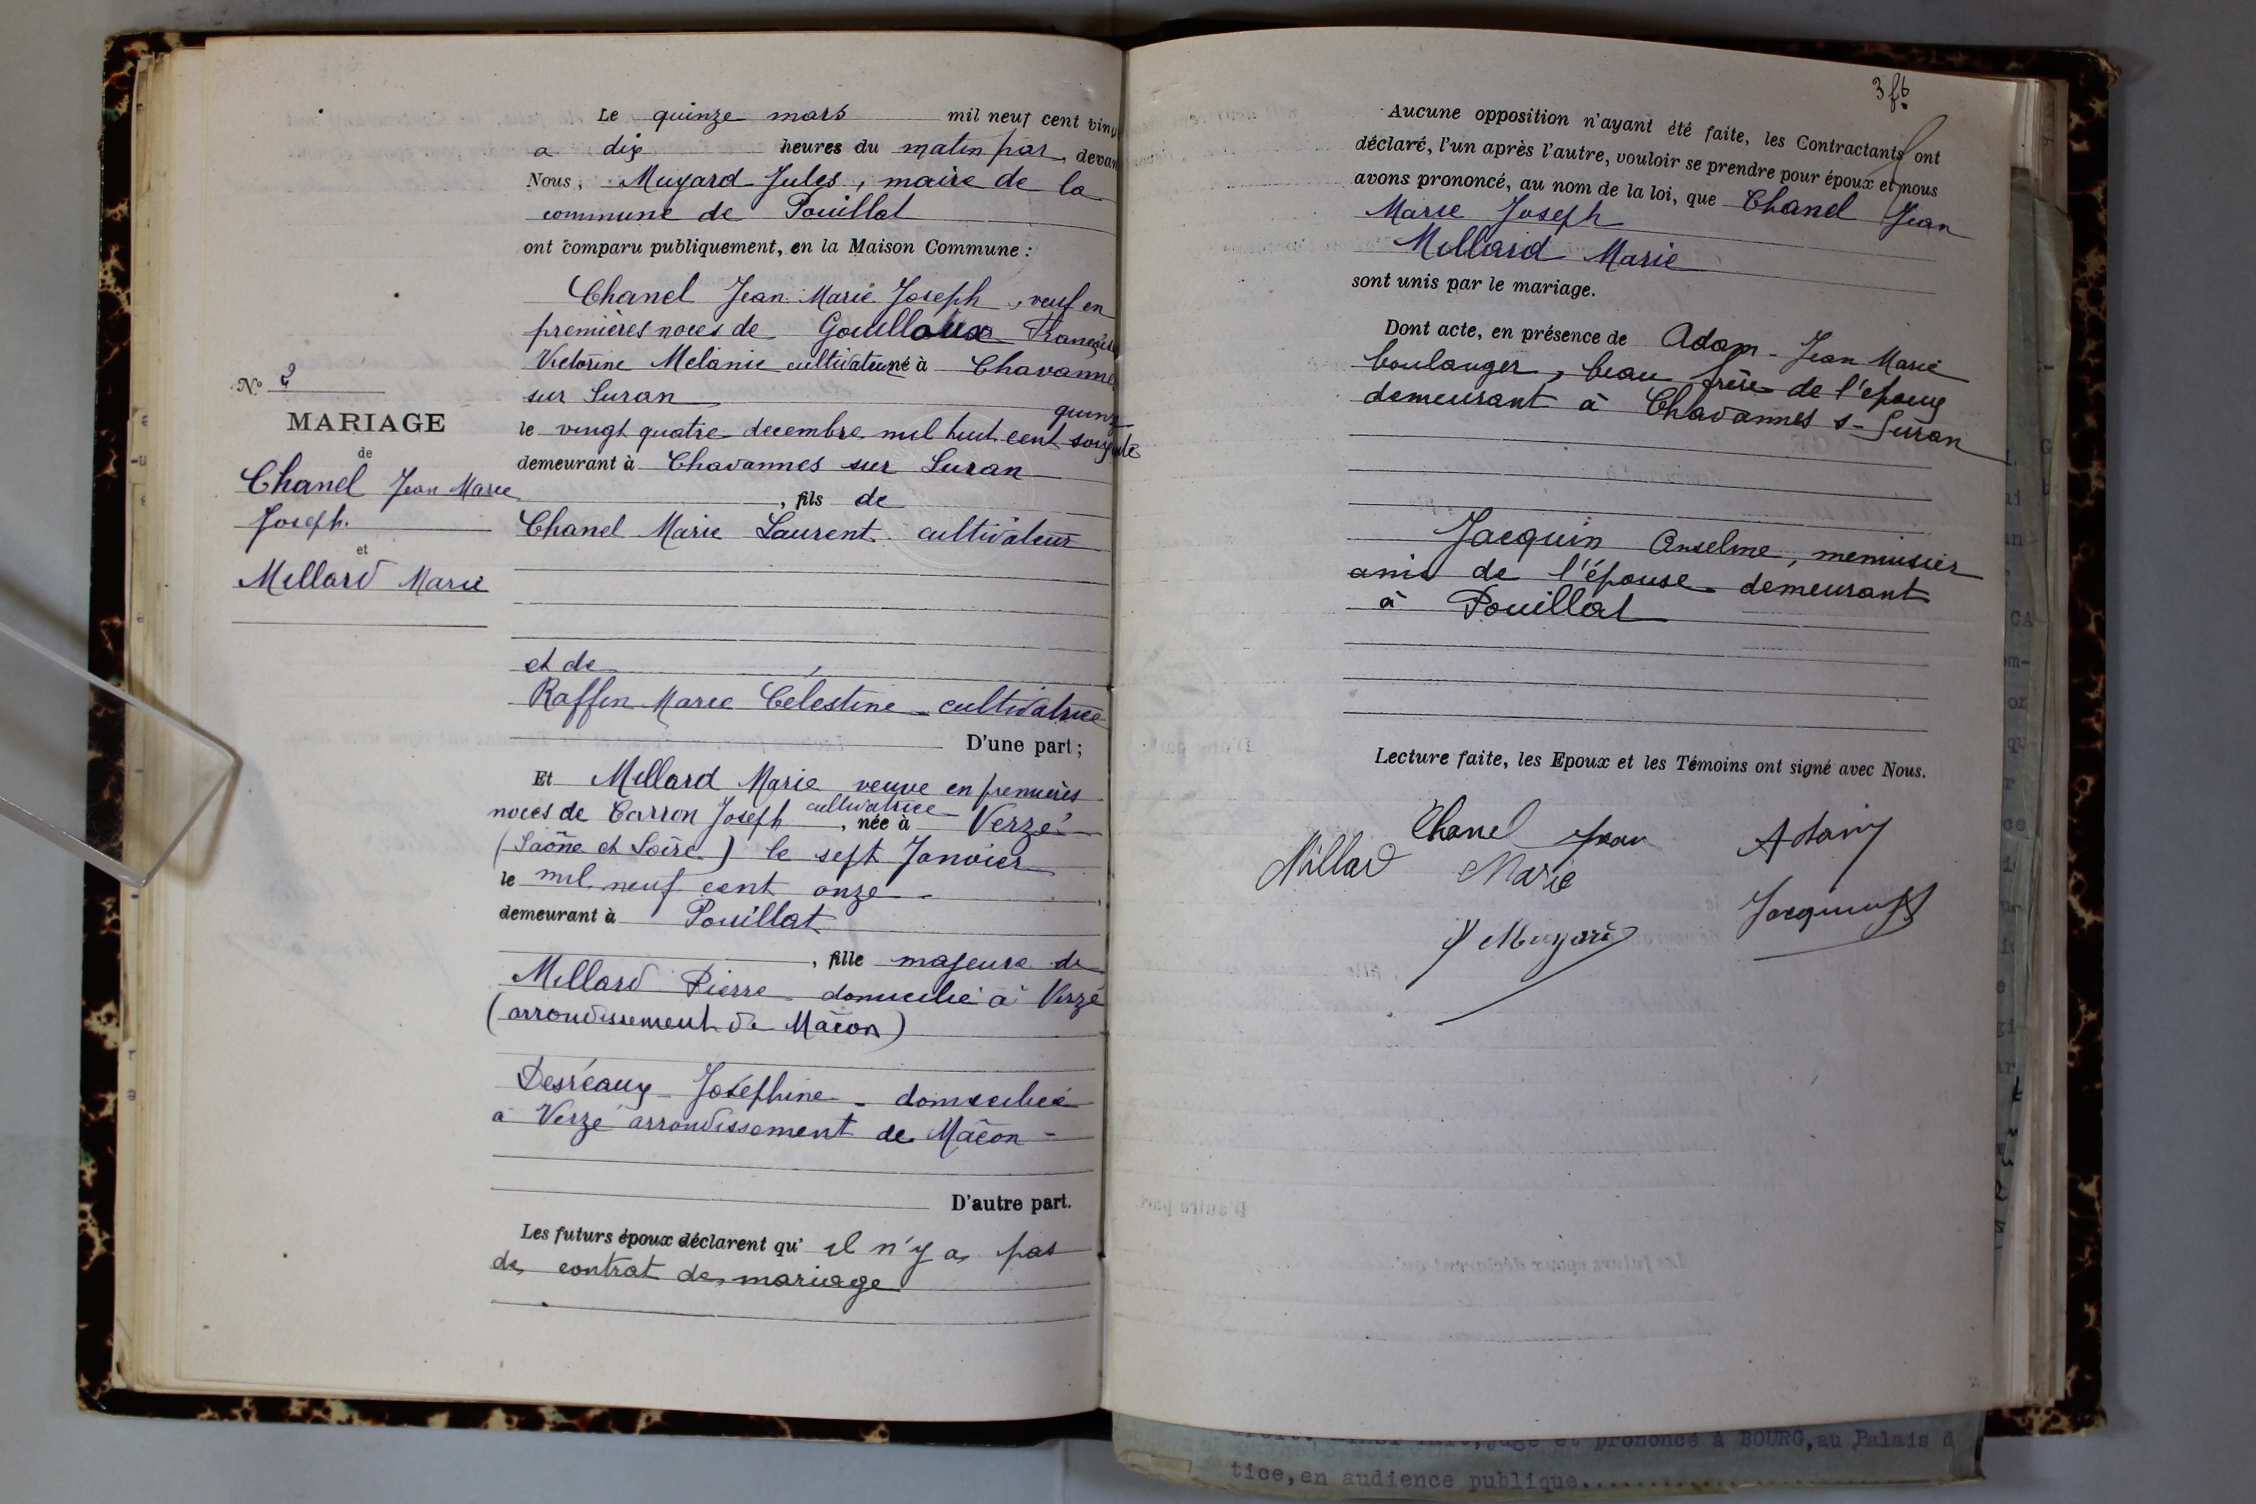 Le quinze mars mil neuf cent
a dix heures du matin par, devan
Nous, Muyard Jules, maire de la
commune de Pouillat
ont comparu publiquement, en la Maison Commune :
Chanel Jean Marie Joseph, veuf en
premières noces de Gouilloux
Victorine Melanie cultivateur né à Chavannes
sur Suran
quinz
le vingt quatre decembre mil huit cent soixante
demeurant à Chavannes sur Suran
, fils de
Chanel Marie Laurent cultivateur
et de
Raffin Marie Célestine cultivatrice
D'une part ;
N° 2
MARIAGE
de
Chanel Jean Marie
Joseph.
et
Millard Marie
Et Millard Marie veuve en premières
cultivatrice
noces de Carron Joseph, née à Verzé
(Saône et Loire) le sept Janvier
le mil neuf cent onze
demeurant à Pouillat
, fille majeure de
Millard Pierre domicilié à Verzé
(arrondissement de Mâcon)
Desréaux Joséphine - domiciliée
à Verzé arrondissement de Mâcon -
D'autre part.
Les futurs époux déclarent qu' il n'y a pas
de contrat de mariage
Aucune opposition n'ayant été faite, les Contractants ont
déclaré, l'un après l'autre, vouloir se prendre pour époux et nous
avons prononcé, au nom de la loi, que Chanel Jean
Marie Joseph
Millard Marie
sont unis par le mariage.
Dont acte, en présence de Adam Jean Marie
boulanger, beau frère de l'époux
demeurant à Chavannes s- Suran
Jacquin Anselme, menuisier
ami de l'épouse demeurant
à Pouillat
Lecture faite, les Epoux et les Témoins ont signé avec Nous.
Chanel Jean Adam
Millard Marie
J Muyard Jacquin
prononcé à BOURG, au Palais d
tice, en audience publique